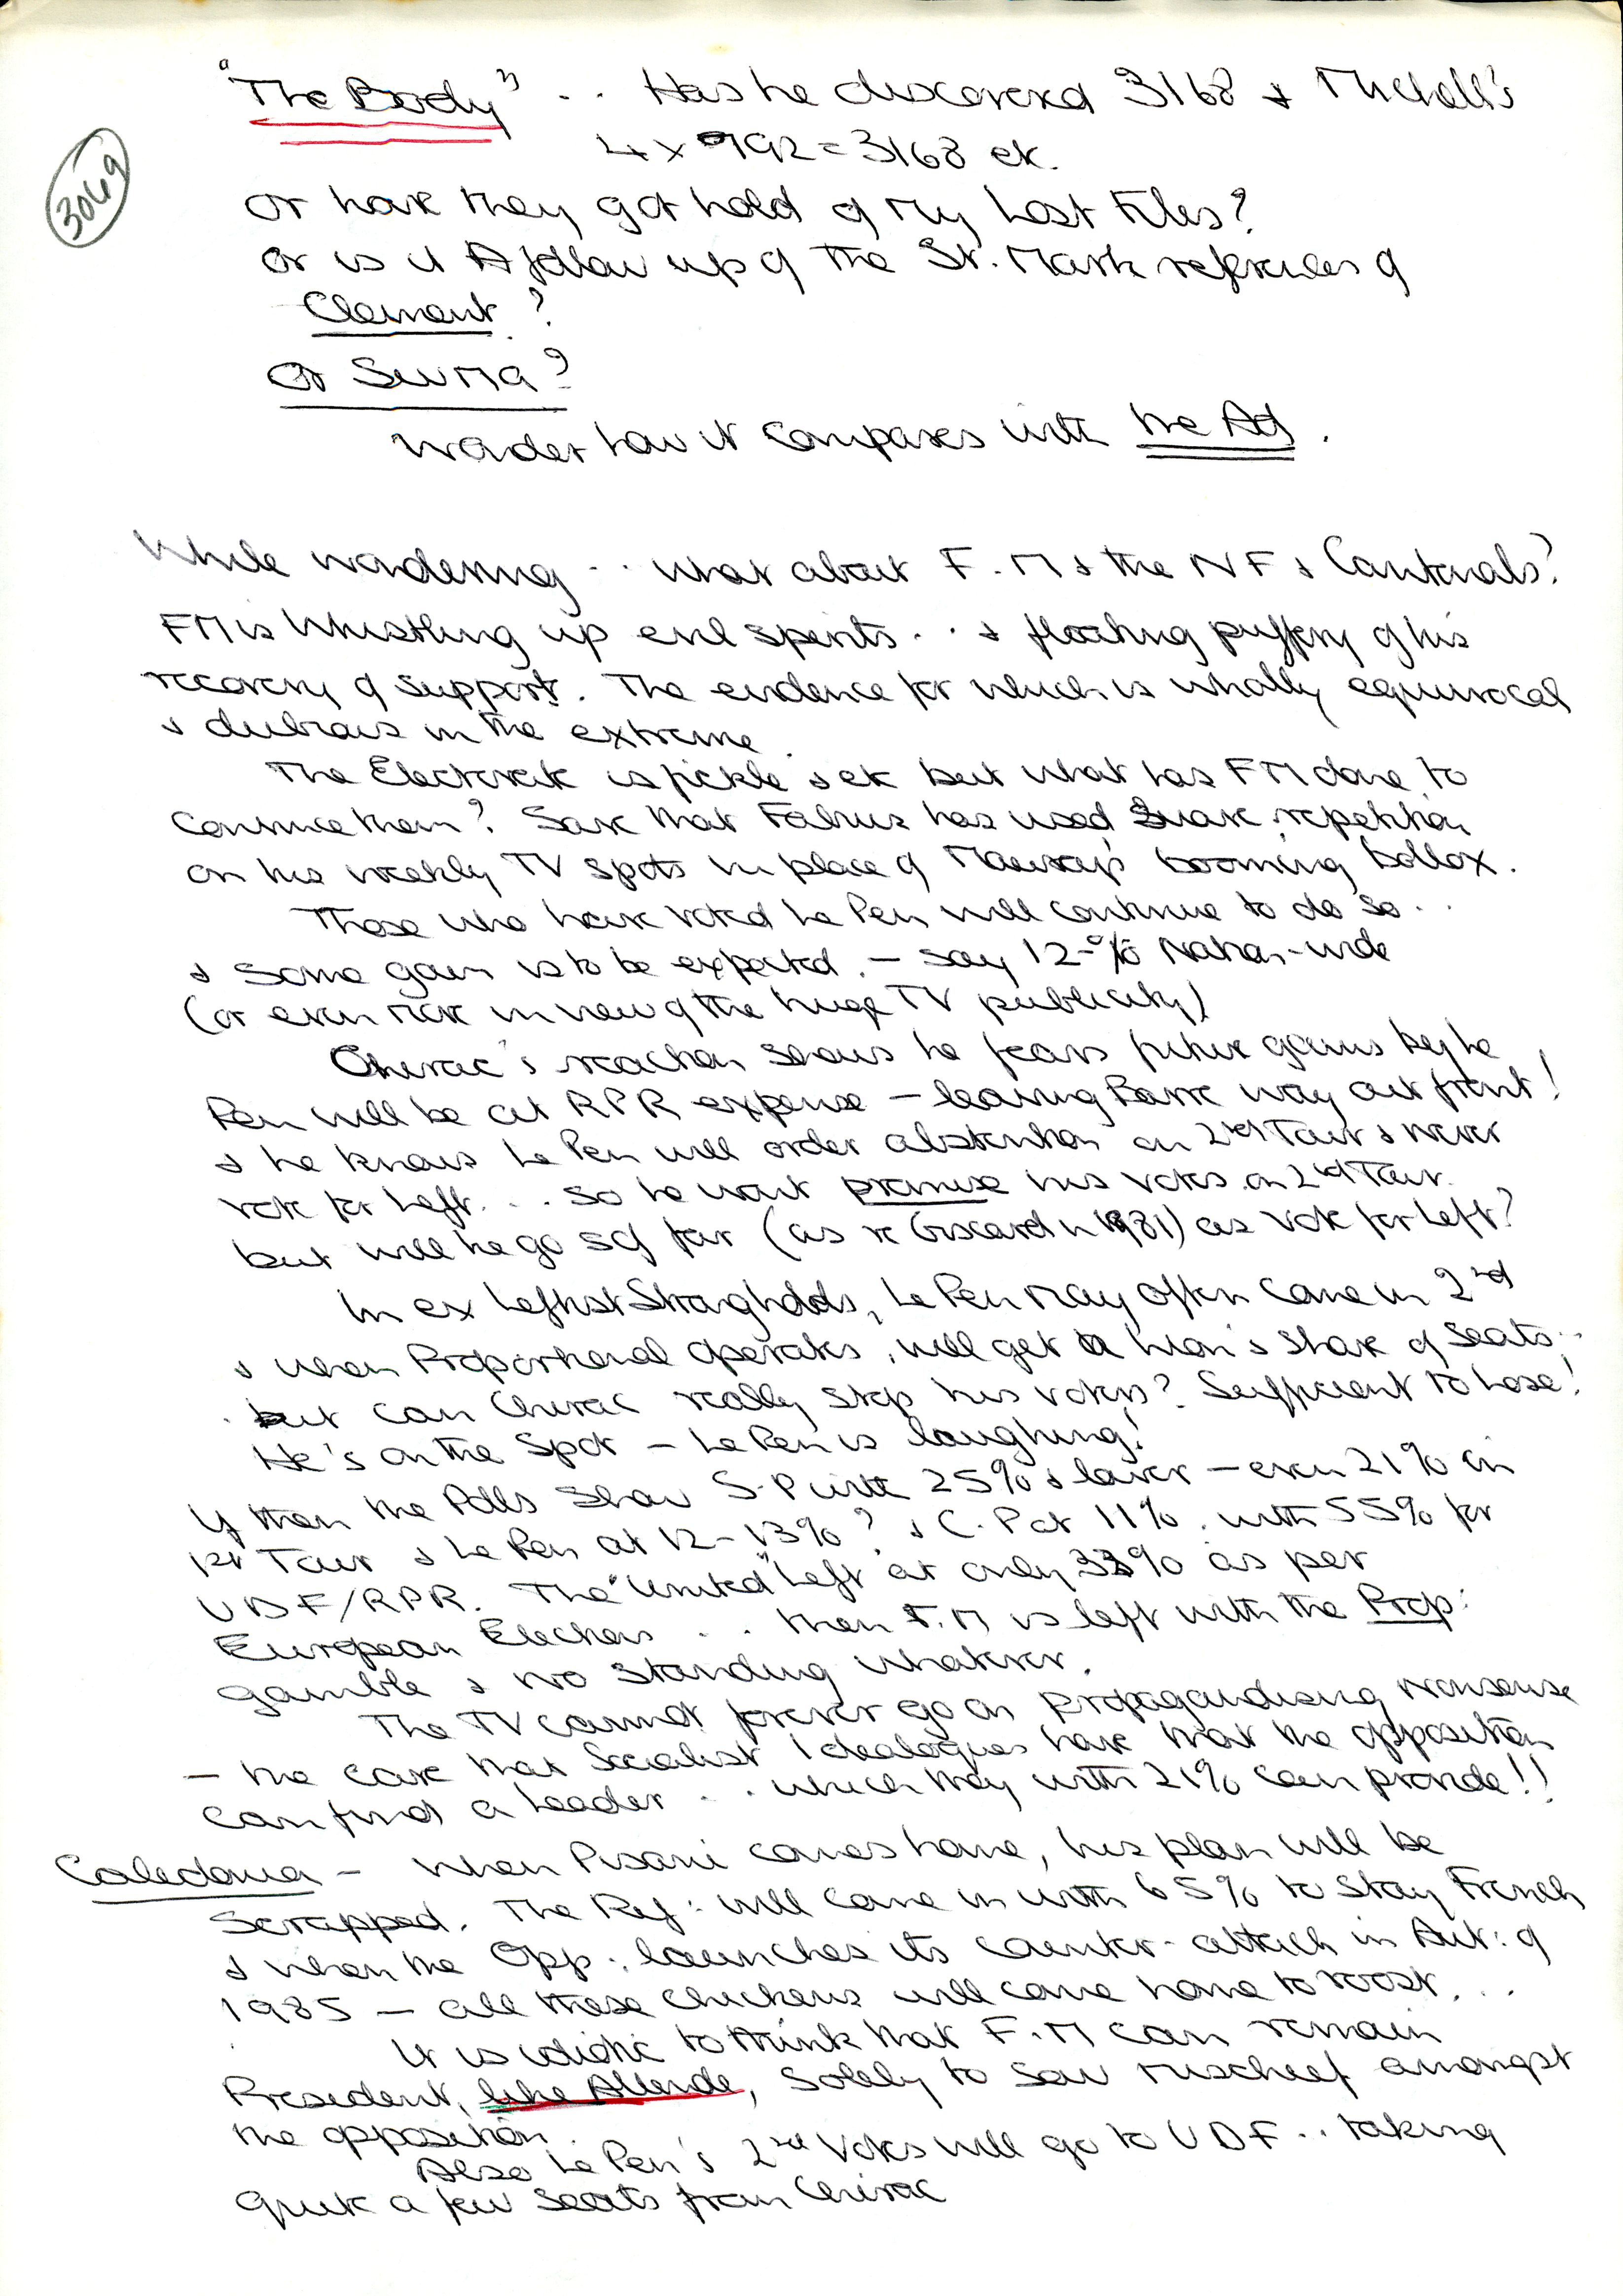 "The Body" .. Has he discovered 3168 & Michell's
3049
4 x 792 = 3168 etc.
or have they got hold of my Lost Files?
or is it A follow up of the St. Mark references of
Clement?
or Surma?
Wonder how it compares with the Ad.
While wondering .. what about F.M & the NF & Cantonals?
FM is whistling up evil spirits .. & floating puffery of his
recovery of support. The evidence for which is wholly equivocal
& dubious in the extreme.
The Electorate is fickle & etc but what has FM done to
convince them? Save that Fabius has used suave repetition
on his weekly TV spots in place of Mauroy's booming bollox.
Those who have voted Le Pen will continue to do so ..
& some gain is to be expected. - say 12-% Nation-wide
(or even more in view of the huge TV publicity)
Chirac's reaction shows he fears future gains by Le
Pen will be at RPR expense - leaving Barre way out front!
& he knows Le Pen will order abstention on 2nd Tour & never
vote for Left ... so he wont promise his votes on 2nd Tour.
but will he go so far (as re Giscard in 1981) as vote for Left?
In ex Leftist Strongholds, Le Pen may often come in 2nd
& when Proportional operates, will get a lion's share of seats ..
but can Chirac really stop his voters? Sufficient to lose!
He's on the Spot - Le Pen is laughing!
If then the Polls show S.P with 25% & lower - even 21% on
1st Tour & Le Pen at 12-13%? & C.P at 11%. with 55% for
UDF/RPR. The "United" Left at only 33% as per
European Elections .. then F.M is left with the Prop:
gamble & no standing whatever.
The TV cannot forever go on propagandising nonsense
- the care that Socialist Idealogues have that the opposition
can find a Leader .. which they with 21% can provide!!
Caledonia - When Pisani comes home, his plan will be
scrapped. The Ref: will come in with 65% to stay French
& when the Opp: launches its counter-attack in Aut: of
1985 - all these chickens will come home to roost ...
It is idiotic to think that F.M can remain
President, like Allende, solely to sow mischief amongst
the opposition.
Also Le Pen's 2nd Votes will go to UDF .. taking
quite a few seats from Chirac